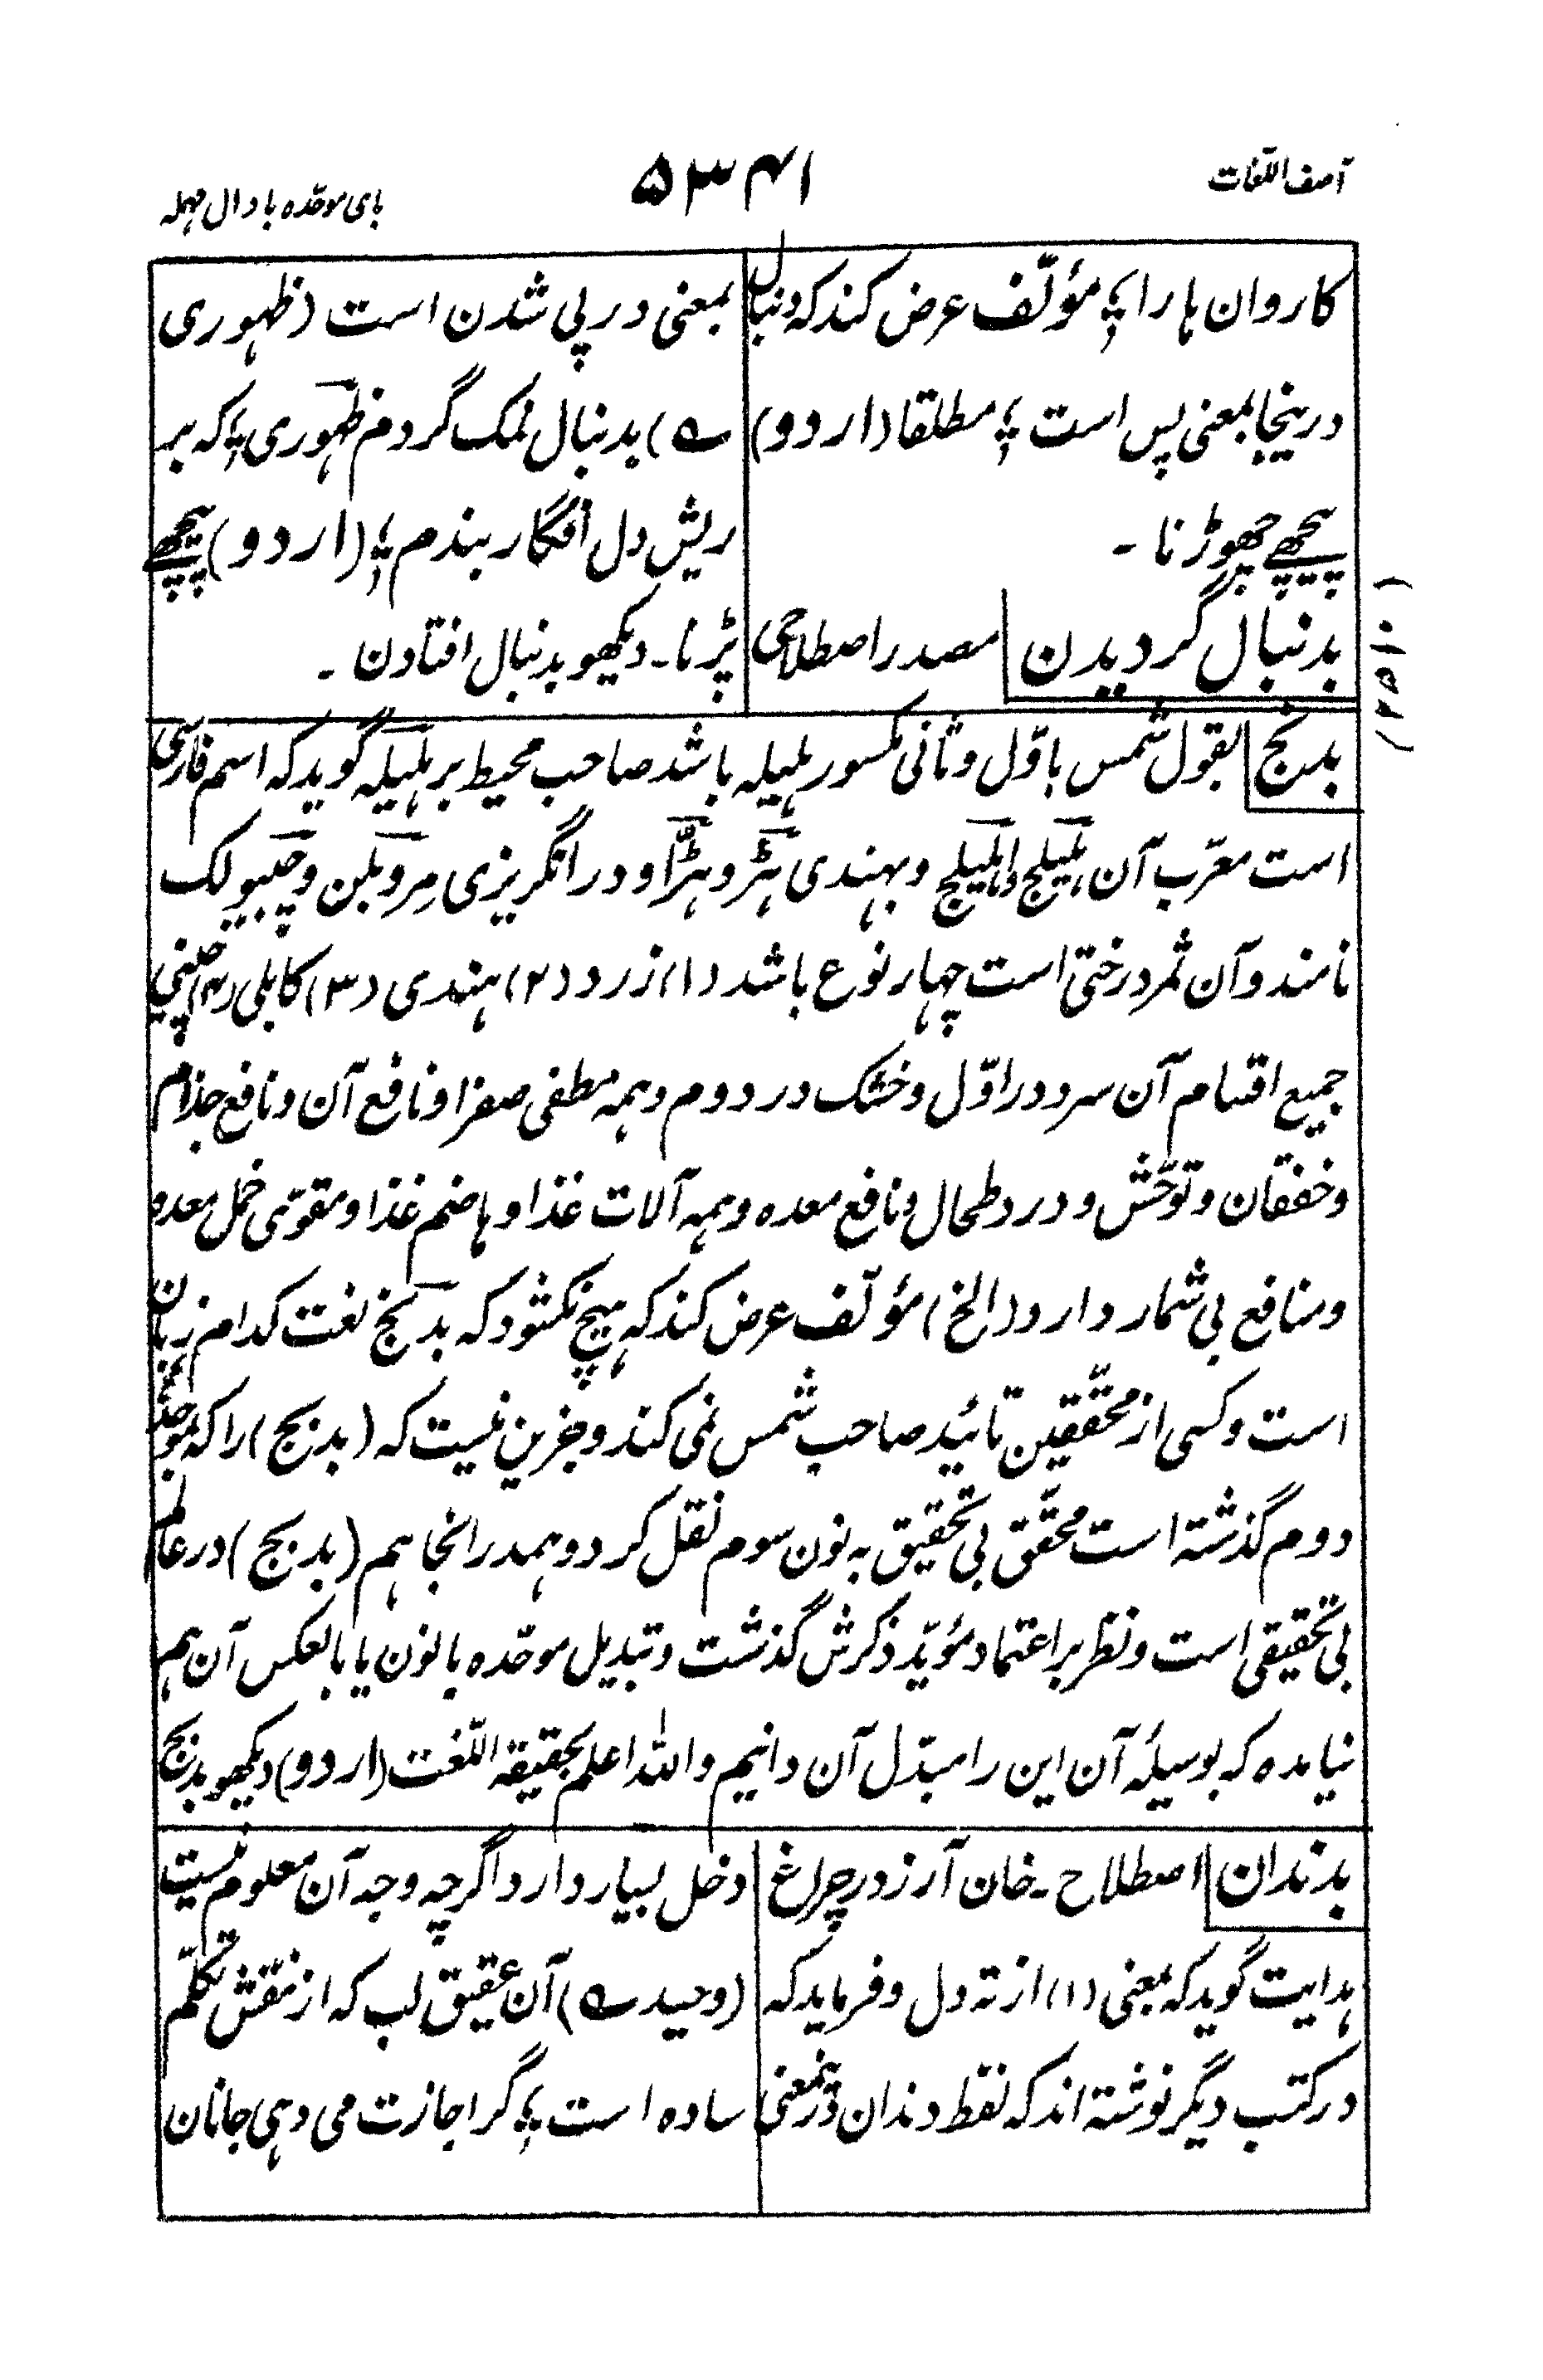 آصف اللغات
۵۳۴۱
بای موحّده با دال مهمله
کاروان ہا را ؛؛ مؤلّف عرض کند که دنبال
درینجا بمعنی پس است ؛؛ مطلقا (اردو)
پیچھے چھوڑنا ۔
بدنبال گردیدن مصدر اصطلاحی
بمعنی در پی شدن است (ظہوری
ے) بدنبال نمک گردم ظہوری ؛؛ که بر
ریش دل افگار بندم ؛؛ (اردو) پیچھے
پڑنا ۔ دیکھو بدنبال افتادن ۔
بدنج بقول شمس باوّل و ثانی مکسور ہلیله باشد صاحب محیط بر ہلیله گوید که اسم فارسی
است معرّب آن ہلیلج و اہلیلج و بہندی ہڑ و ہڑّا و در انگریزی مِروبلن و چیبولک
نامند و آن ثمر درختی است چہار نوع باشد (۱) زرد (۲) ہندی (۳) کابلی (۴) چینی
جمیع اقسام آن سرد در اوّل و خشک در دوم و ہمه مطفی صفرا و نافع آن و نافع جذام
و خفقان و توحّش و درد طحال و نافع معده و ہمه آلات غذا و ہاضم غذا و مقوّی خمل معده
و منافع بی شمار دارد (الخ) مؤلّف عرض کند که ہیچ نکشود که بدنج لغت کدام زبان
است و کسی از محقّقین تائید صاحب شمس نمی کند و جزین نیست که (بدبج) را که بموحّدۂ
دوم گذشته است محقّق بی تحقیق به نون سوم نقل کرد و ہمدرانجا ہم (بدبج) در عالم
بی تحقیقی است و نظر بر اعتماد مؤیّد ذکرش گذشت و تبدیل موحّده با نون یا بالعکس آن ہم
نیامده که بوسیلۂ آن این را مبدّل آن دانیم واللہ اعلم بحقیقة اللّغت (اردو) دیکھو بدبج
بدندان اصطلاح ۔ خان آرزو در چراغ
ہدایت گوید که بمعنی (۱) از ته دل و فرماید که
در کتب دیگر نوشته اند که لفظ دندان درینمعنی
دخل بسیار دارد اگرچه وجه آن معلوم نیست
(وحید ے) آن عقیق لب که از نقش تکلّم
ساده است ؛؛ گر اجازت می دہی جانان